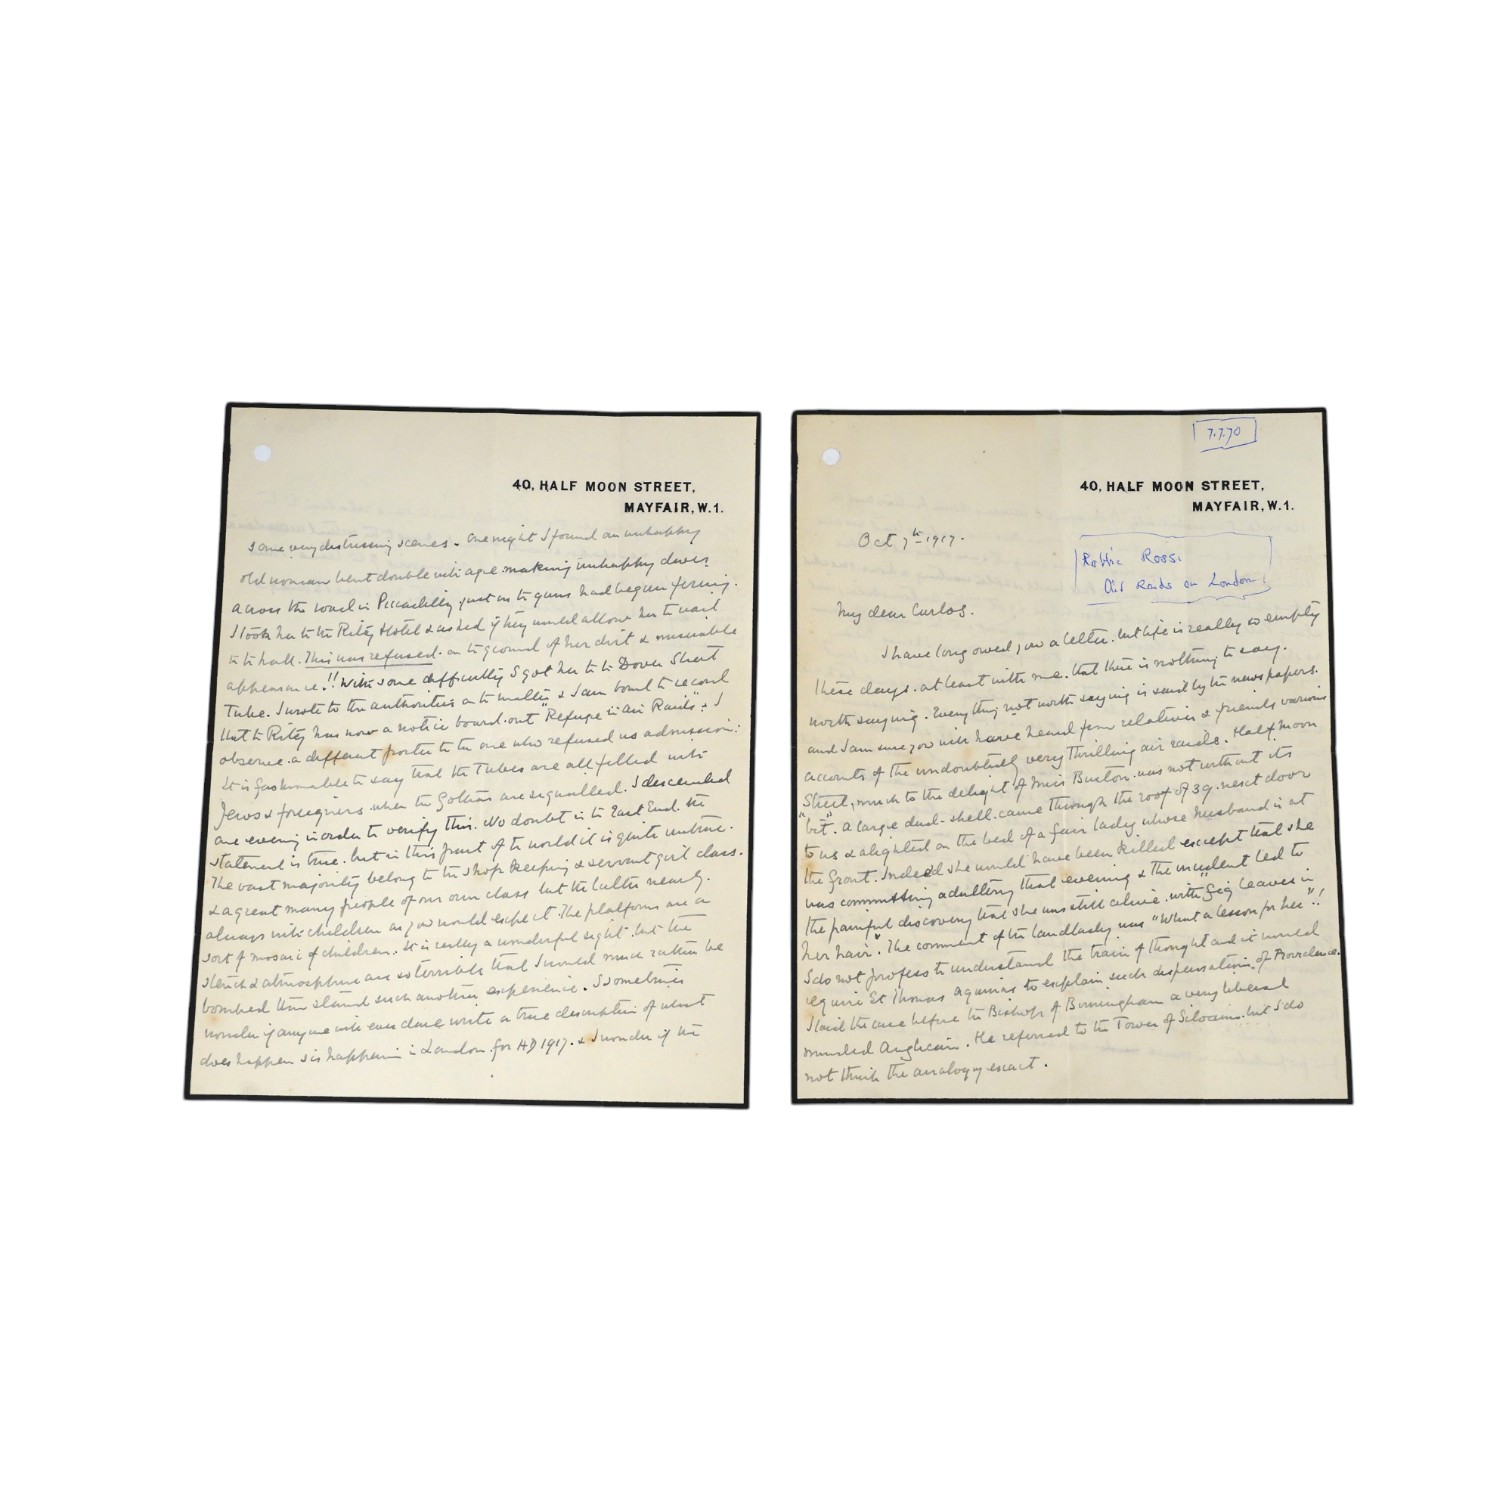 40, HALF MOON STREET,
MAYFAIR, W.1.
some very distressing scenes. One night I found an unhappy
old woman bent double with age making unhappy dives
across the road in Piccadilly just as the guns had begun firing.
I took her to the Ritz Hotel & asked if they would allow her to wait
in the hall. This was refused. on the ground of her dirt & miserable
appearance!! With some difficulty I got her to the Dover Street
Tube. I wrote to the authorities on the matter & I am bound to record
that the Ritz has now a notice board out "Refuge in Air Raids" & I
observe a different porter to the one who refused us admission:
It is fashionable to say that the Tubes are all filled with
Jews & foreigners when the Gothas are signalled. I descended
one evening in order to verify this. No doubt in the East End the
statement is true. but in this part of the world it is quite untrue.
The vast majority belong to the shop keeping & servant girl class.
& a great many people of our own class but the latter nearly
always with children as you would expect. The platforms are a
sort of mosaic of children. It is really a wonderful sight. but the
stench & atmosphere are so terrible that I would much rather be
bombed than stand such another experience. I sometimes
wonder if anyone will ever dare write a true description of what
does happen & is happening in London for AD 1917. & I wonder if the
7.7.70
40, HALF MOON STREET,
MAYFAIR, W.1.
Oct 7th 1917.
Robbie Ross:
Air Raids on London
My dear Carlos.
I have long owed you a letter. but life is really so empty
these days. at least with me. that there is nothing to say.
worth saying. Everything not worth saying is said by the newspapers.
and I am sure you will have heard from relatives & friends various
accounts of the undoubtedly very thrilling air raids. Half Moon
Street, much to the delight of Miss Burton. was not without its
"bit". A large dud-shell came through the roof of 39. next door
to us & alighted on the bed of a fair lady whose husband is at
the front. Indeed she would have been killed except that she
was committing adultery that evening & the incident led to
the painful discovery that she was still alive. with fig leaves in
her hair". The comment of the landlady was "What a lesson for her"!!
I do not profess to understand the train of thought and it would
require St Thomas Aquinas to explain such dispensation of Providence.
I laid the case before the Bishop of Birmingham a very liberal
minded Anglican. He referred to the Tower of Siloam. but I do
not think the analogy exact.